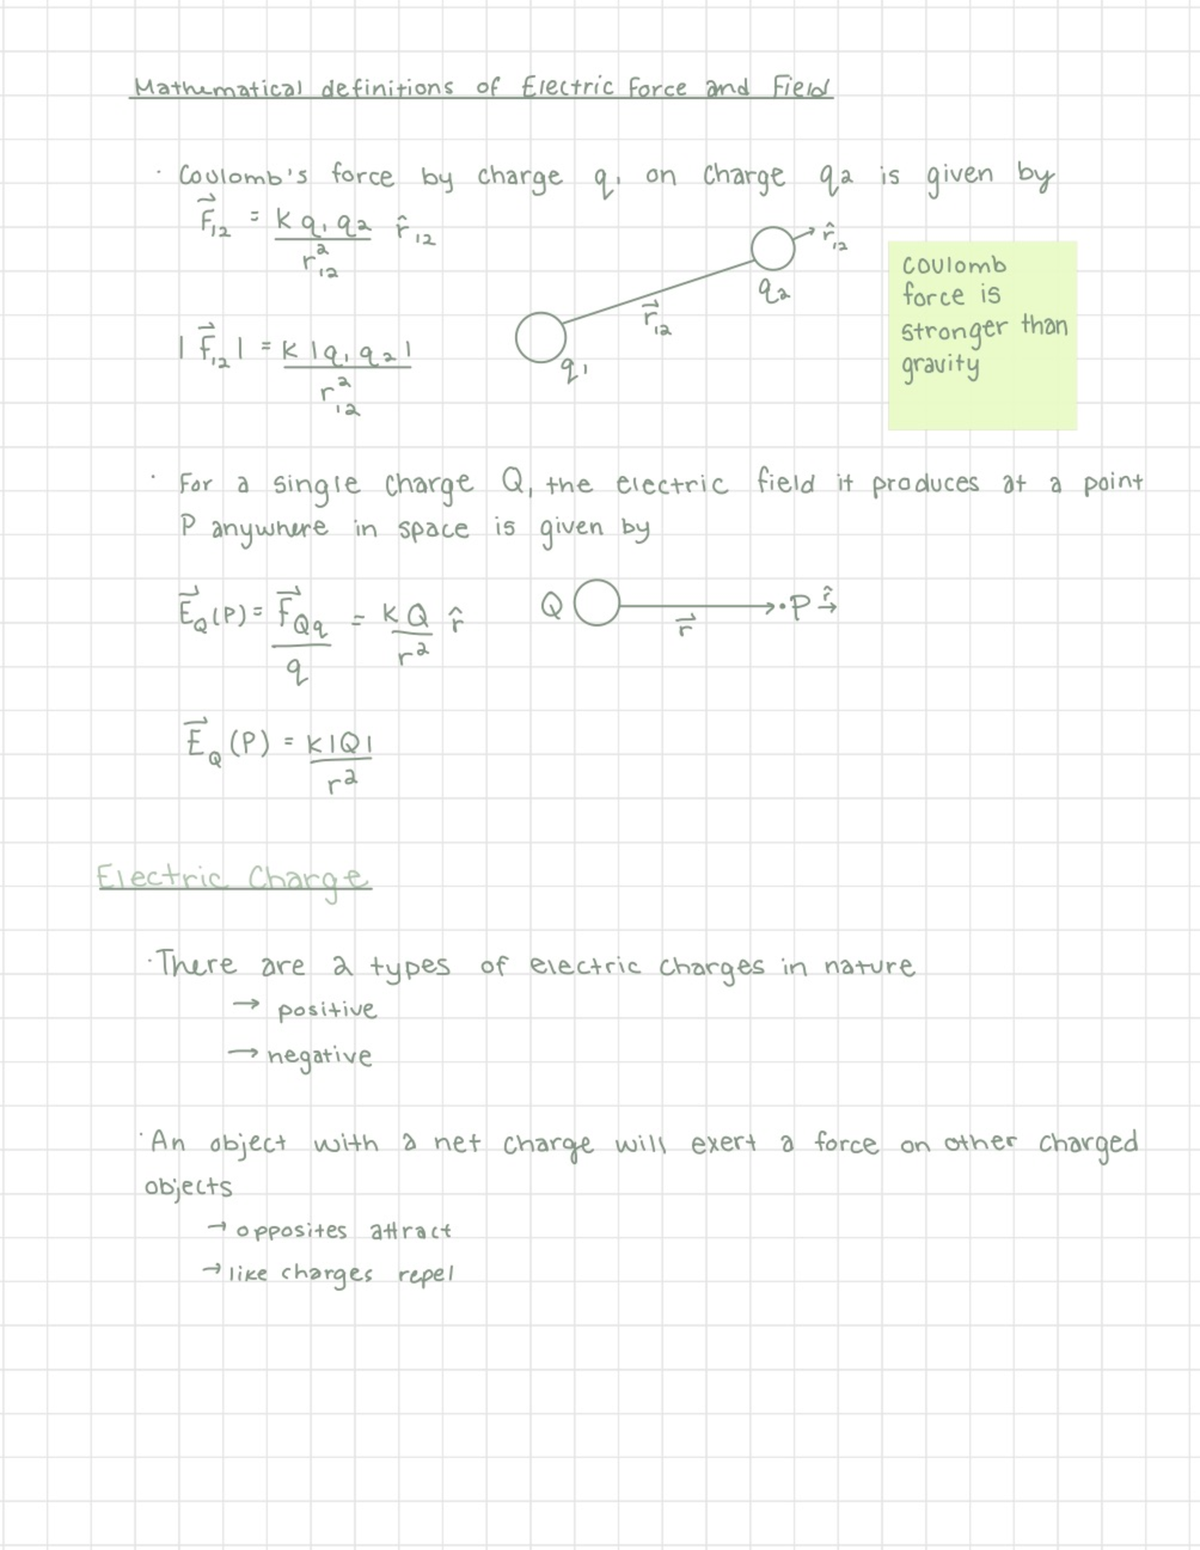 Mathematical definitions of Electric Force and Field
· Coulomb's force by charge q₁ on charge q₂ is given by
F⃗₁₂ = k q₁ q₂ / r₁₂² r̂₁₂
r̂₁₂
r⃗₁₂
q₂
q₁
|F⃗₁₂| = k |q₁ q₂| / r₁₂²
Coulomb
force is
stronger than
gravity
· For a single charge Q, the electric field it produces at a point
P anywhere in space is given by
E⃗_Q(P) = F⃗_Qq / q = kQ / r² r̂
Q r⃗ ·P r̂
E⃗_Q (P) = k|Q| / r²
Electric Charge
· There are 2 types of electric charges in nature
→ positive
→ negative
· An object with a net charge will exert a force on other charged
objects
→ opposites attract
→ like charges repel